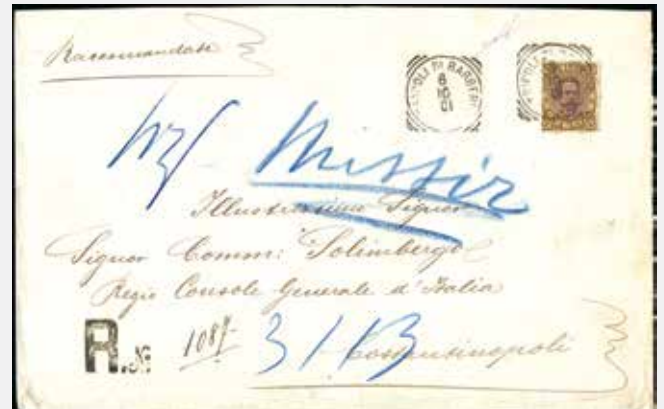 Raccomandata
TRIPOLI DI BARBERIA
6
10
01
TRIPOLI DI
Missir
Illustrissimo Signor
Signor Comm: Solimbergo
Regio Console Generale d'Italia
R.No 1087
3/13
Costantinopoli